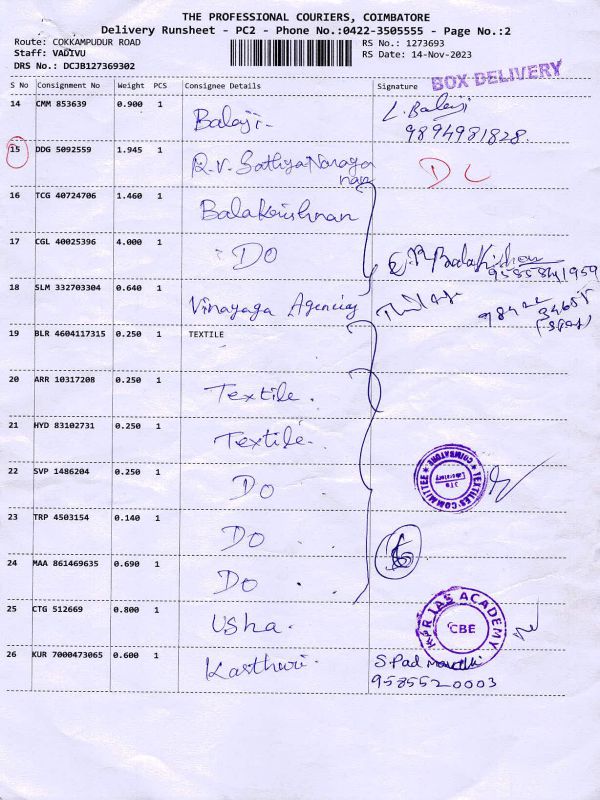 THE PROFESSIONAL COURIERS, COIMBATORE
Delivery Runsheet - PC2 - Phone No.:0422-3505555 - Page No.:2
Route: COKKAMPUDUR ROAD RS No.: 1273693
Staff: VADIVU RS Date: 14-Nov-2023
DRS No.: DCJB127369302
BOX DELIVERY
S No Consignment No Weight PCS Consignee Details Signature
14 CMM 853639 0.900 1 Balaji- L. Balaji
9894981828
15 DDG 5092559 1.945 1 R.V. Sathya Naraya DL
nan
16 TCG 40724706 1.460 1 Balakrishnan
17 CGL 40025396 4.000 1 DO
18 SLM 332703304 0.640 1 Vinayaga Agencies
19 BLR 4604117315 0.250 1 TEXTILE
20 ARR 10317208 0.250 1 Textile.
21 HYD 83102731 0.250 1 Textile-
22 SVP 1486204 0.250 1 DO COIMBATORE TEXTILES COMMITTEE
23 TRP 4503154 0.140 1 DO.
24 MAA 861469635 0.690 1 DO.
25 CTG 512669 0.800 1 Usha. KPR IAS ACADEMY CBE
26 KUR 7000473065 0.600 1 Kasthuri. S.Pad
9585520003